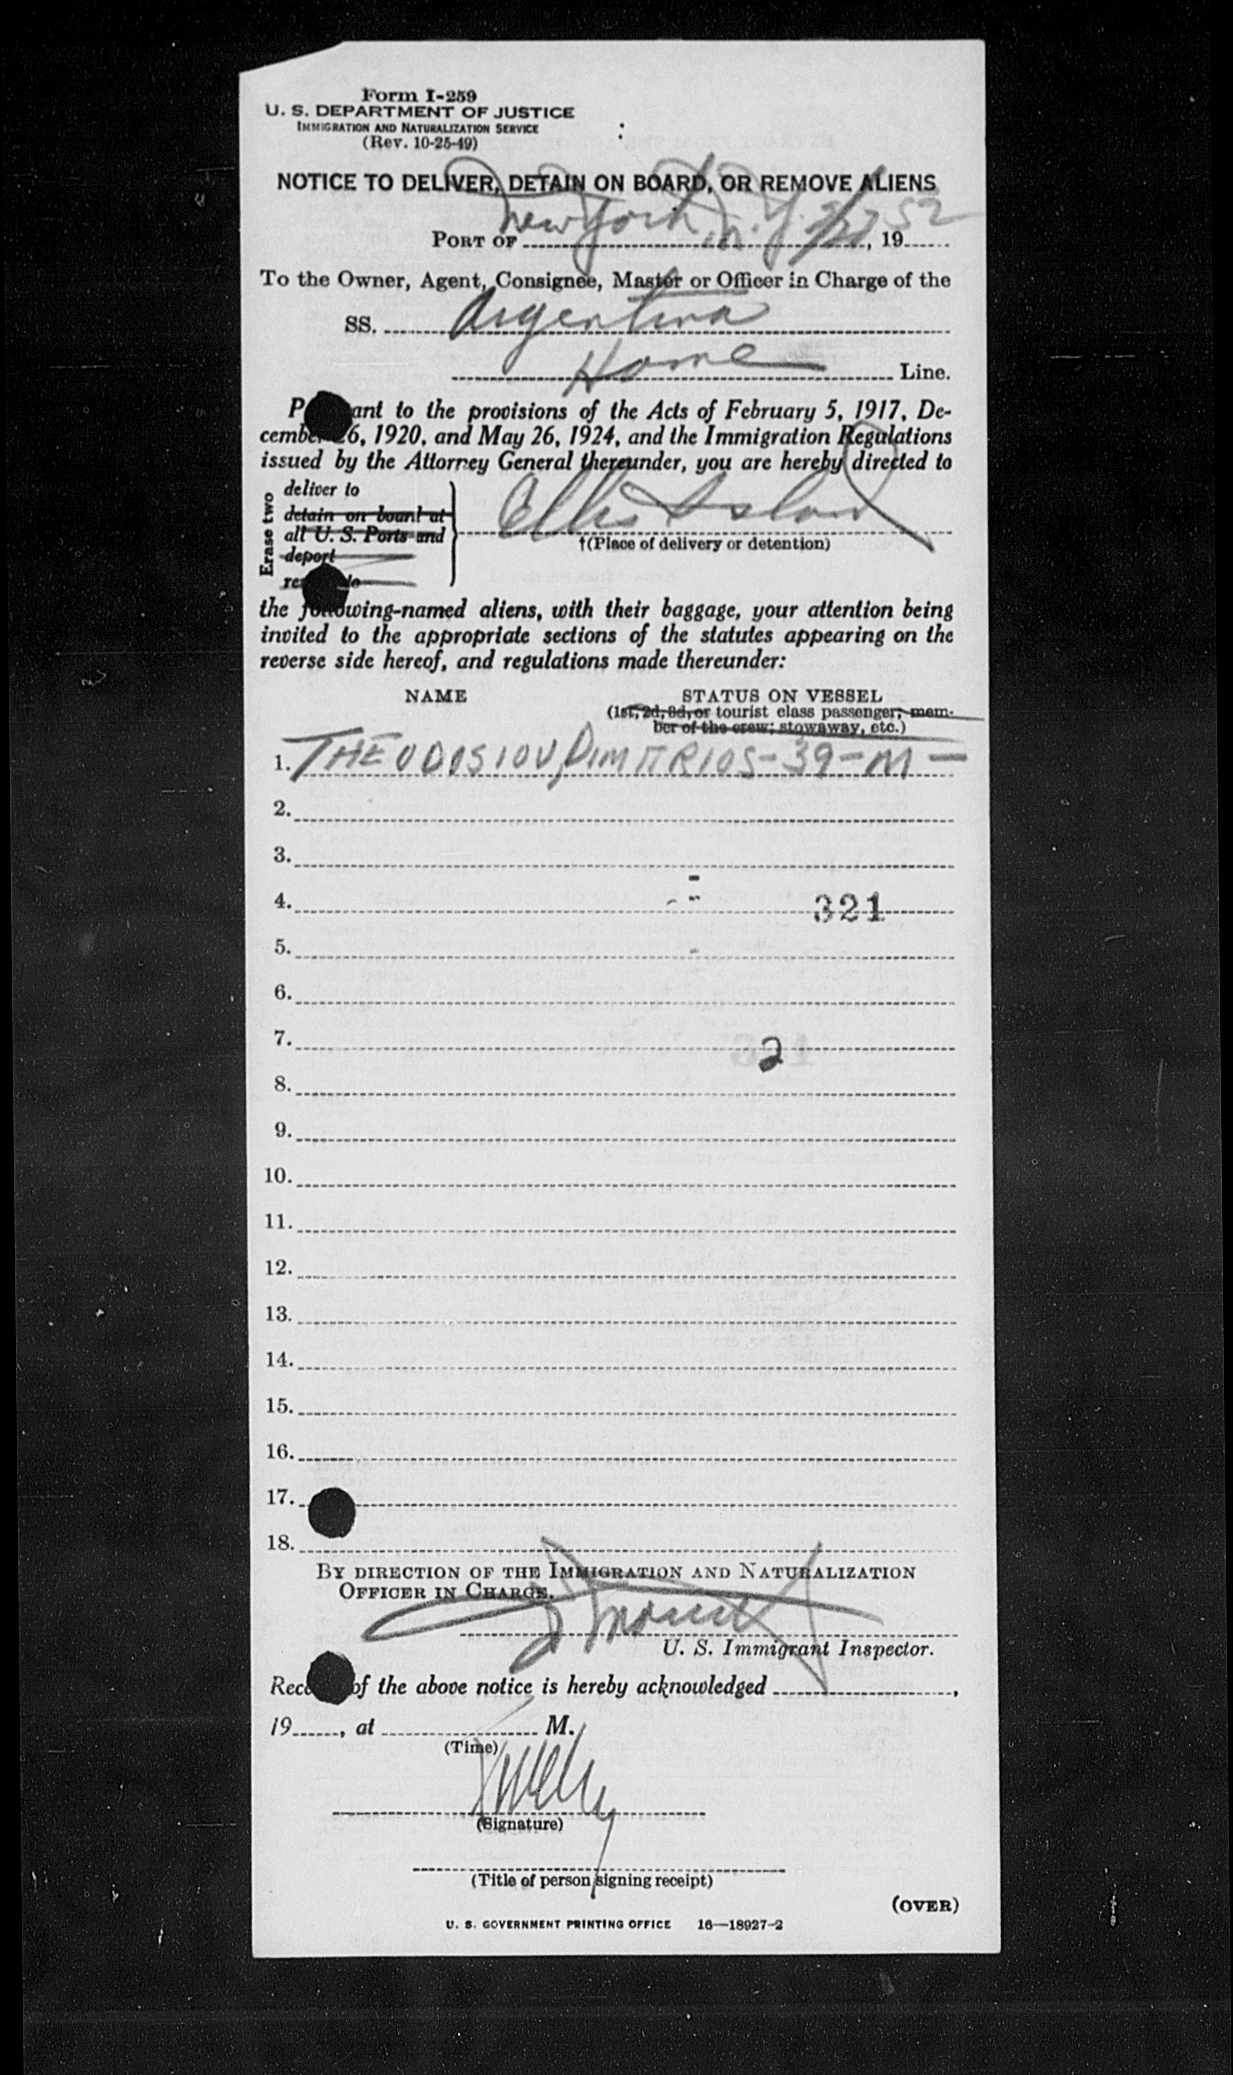 Form I-259
U. S. DEPARTMENT OF JUSTICE
IMMIGRATION AND NATURALIZATION SERVICE
(Rev. 10-25-49)
NOTICE TO DELIVER, DETAIN ON BOARD, OR REMOVE ALIENS
PORT OF New York, N.Y. 52, 19
To the Owner, Agent, Consignee, Master or Officer in Charge of the
SS. Argentina
Home Line.
P ant to the provisions of the Acts of February 5, 1917, De-
cember 26, 1920, and May 26, 1924, and the Immigration Regulations
issued by the Attorney General thereunder, you are hereby directed to
Erase two
deliver to
detain on board at
all U. S. Ports and
deport
re to
Ellis Island
†(Place of delivery or detention)
the following-named aliens, with their baggage, your attention being
invited to the appropriate sections of the statutes appearing on the
reverse side hereof, and regulations made thereunder:
NAME STATUS ON VESSEL
(1st, 2d, 3d, or tourist class passenger; mem-
ber of the crew; stowaway, etc.)
1. THEODOSIOU, DIMITRIOS - 39 - M -
2.
3.
4. 321
5.
6.
7. 2
8.
9.
10.
11.
12.
13.
14.
15.
16.
17.
18.
BY DIRECTION OF THE IMMIGRATION AND NATURALIZATION
OFFICER IN CHARGE.
U. S. Immigrant Inspector.
Rec of the above notice is hereby acknowledged ,
19 , at M.
(Time)
(Signature)
(Title of person signing receipt)
(OVER)
U. S. GOVERNMENT PRINTING OFFICE 16—18927-2